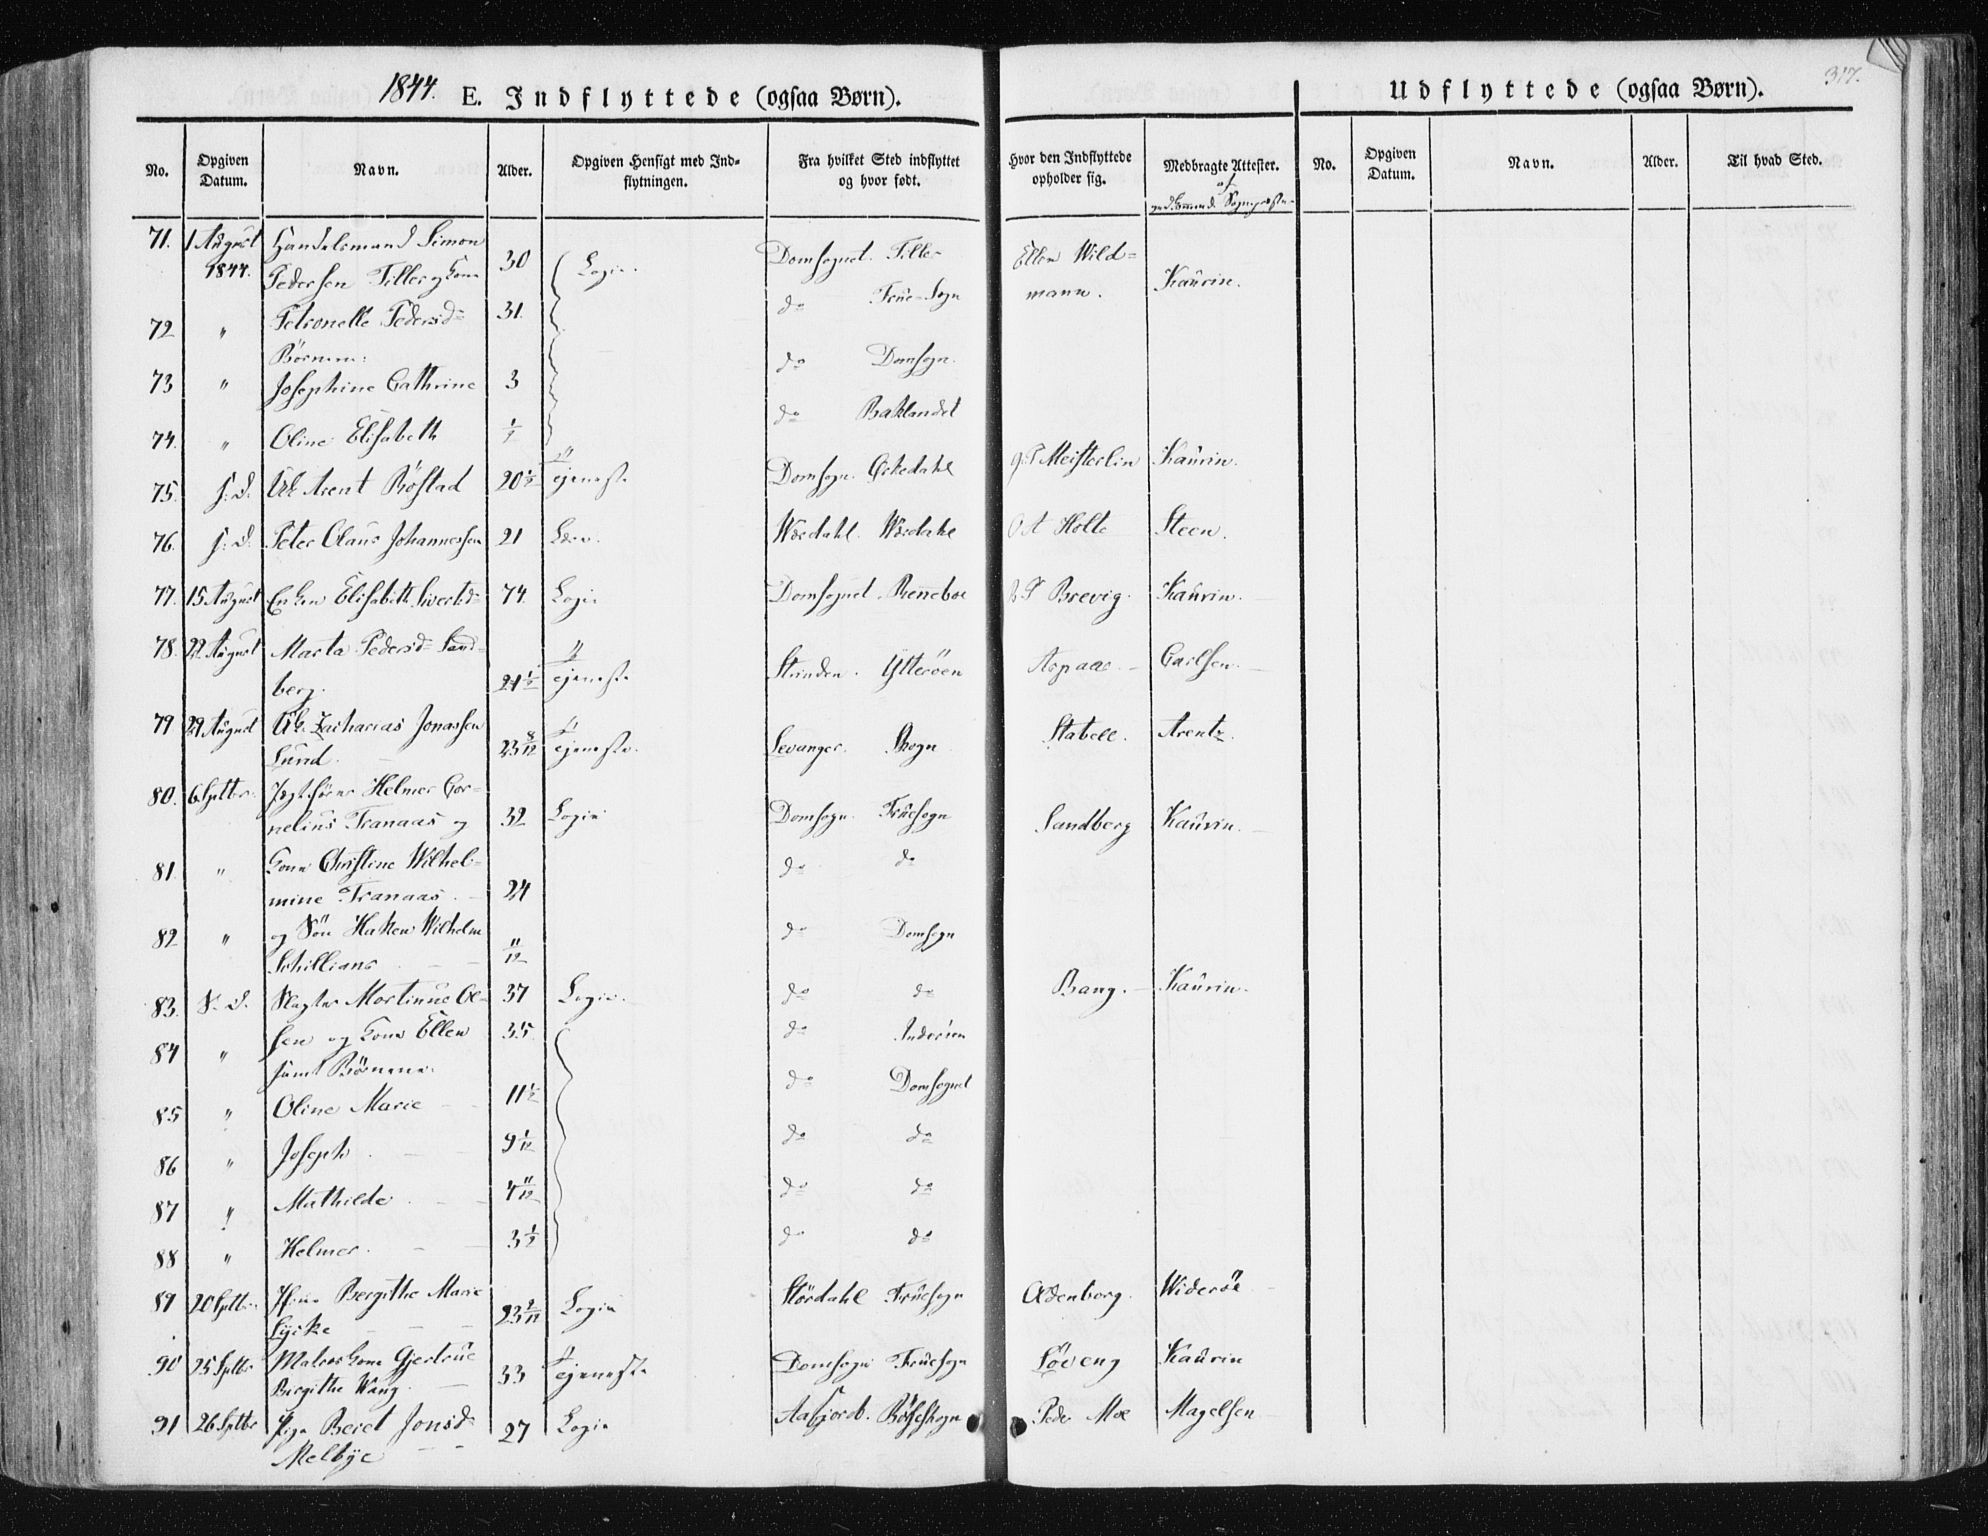 1844. E. Indflyttede (ogsaa Børn).
Udflyttede (ogsaa Børn). 317.
No. Opgiven Datum. Navn. Alder. Opgiven Hensigt med Indflytningen. Fra hvilket Sted indflyttet og hvor født. Hvor den Indflyttede opholder sig. Medbragte Attester. No. Opgiven Datum. Navn. Alder. Til hvad Sted.
71. 1 August 1844. Handelsmand Simon Pedersen Tiller og Kone 30 Logie. Domsognet. Tiller Ellen Wildmann. Kaurin.
72 " Petronelle Pedersd= 31. do Frue-Sogn
Börnene:
73 " Josephine Cathrine 3 do Domsogn.
74. " Oline Elisabeth do Baklandet
75. s: d. Arent Böstad 20½ Tjeneste Domsogn. Orkedahl Meisterlin Kaurin.
76. s: d. Peter Claus Johannessen 21 Lære. Værdahl. Værdahl Holte Steen.
77. 15 August Enken Elisabeth Sivertsd= 74. Logie Domsognet Renneboe Brevig. Kaurin.
78. 22 August Marta Pedersd= Sandberg. 21½ Tjeneste Strinden. Ytteröen Aspaas Carlsen.
79 29 August Zacharias Jonassen Lund. 23 8/12 Tjeneste. Levanger. Skogn Stabell. Arentz.
80. 6 Septbr. Helmer Cornelius Tranaas og 32 Logie Domsogn. Fruesogn Sandberg Kaurin.
81. " Kone Christine Wilhelmine Tranaas. 24 do do
82 " og Sön Haken Wilhelm Schillians 11/12 do Domsogn
83. S. d. Slagter Martinus Ol- 37 Logie. do do Bang. Kaurin.
84 " sen og Kone Ellen 35 do Inderöen
samt Börnene.
85 " Oline Marie 11½ do Domsognet
86 " Joseph 9 1/12 do do
87 " Mathilde 7 11/12 do do
88 " Helmer. 3½ do do
89 20 Septbr. Bergithe Marie Lycke 23 Logie Stördahl Fruesogn Oldenborg. Wideröe
90 25 Septbr Matros Kone Gjertrue Birgitha Wang. 33 Tjeneste Domsogn Fruesogn Löveng Kaurin
91 26 Septbr Pige Beret Jonsd= Melbye 27 Logie Aafjord. Börseskogn Peder Moe Magelsen